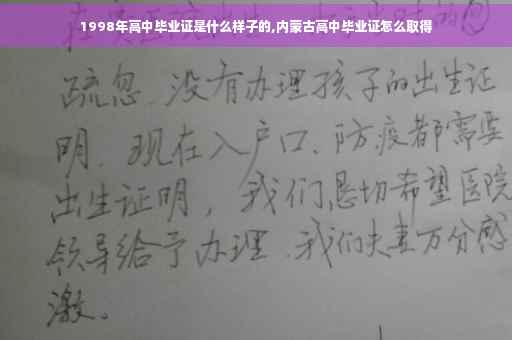 1998年高中毕业证是什么样子的,内蒙古高中毕业证怎么取得
疏忽、没有办理孩子的出生证
明、现在入户口、防疫都需要
出生证明，我们恳切希望医院
领导给予办理、我们夫妻万分感
激。